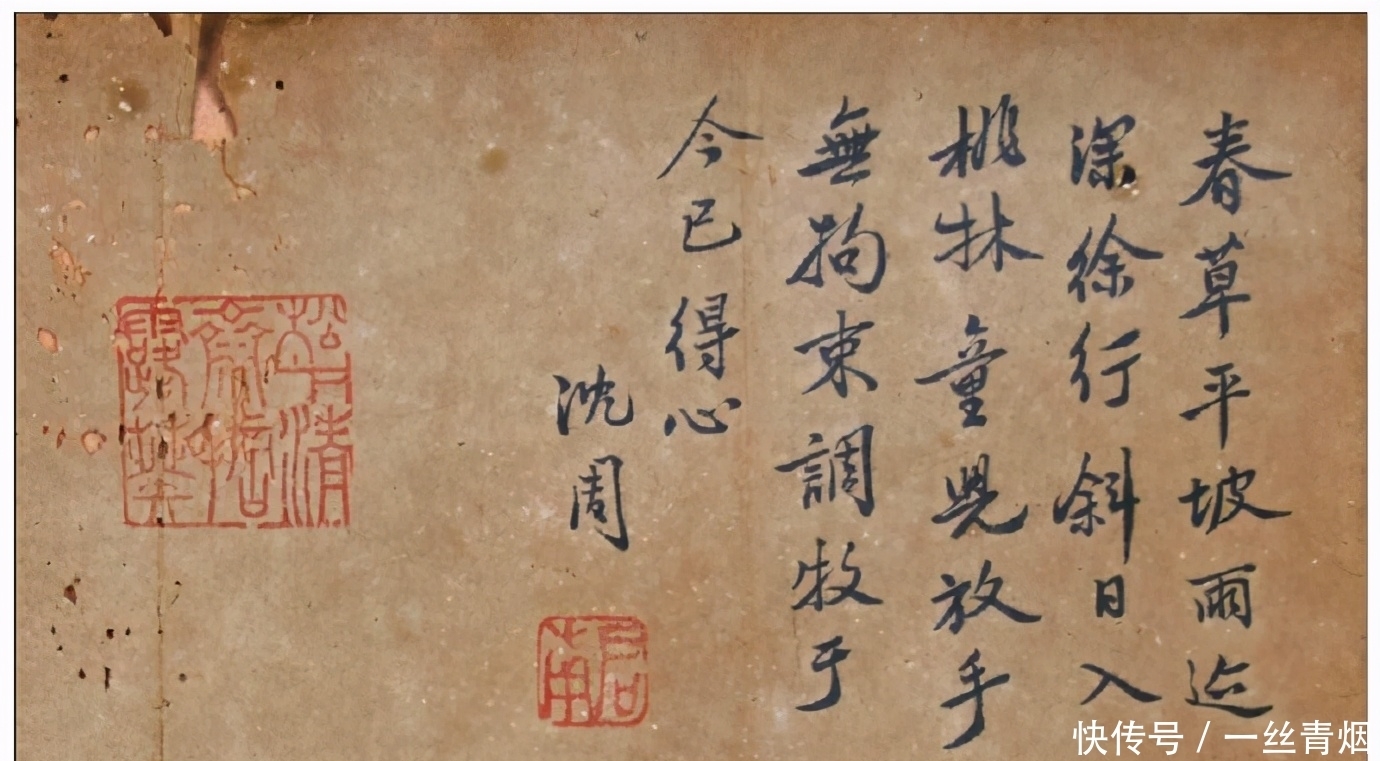 春草平坡雨迹
深徐行斜日入
桃林童兒放手
無拘束調牧于
今已得心
沈周
启南
快传号 / 一丝青烟